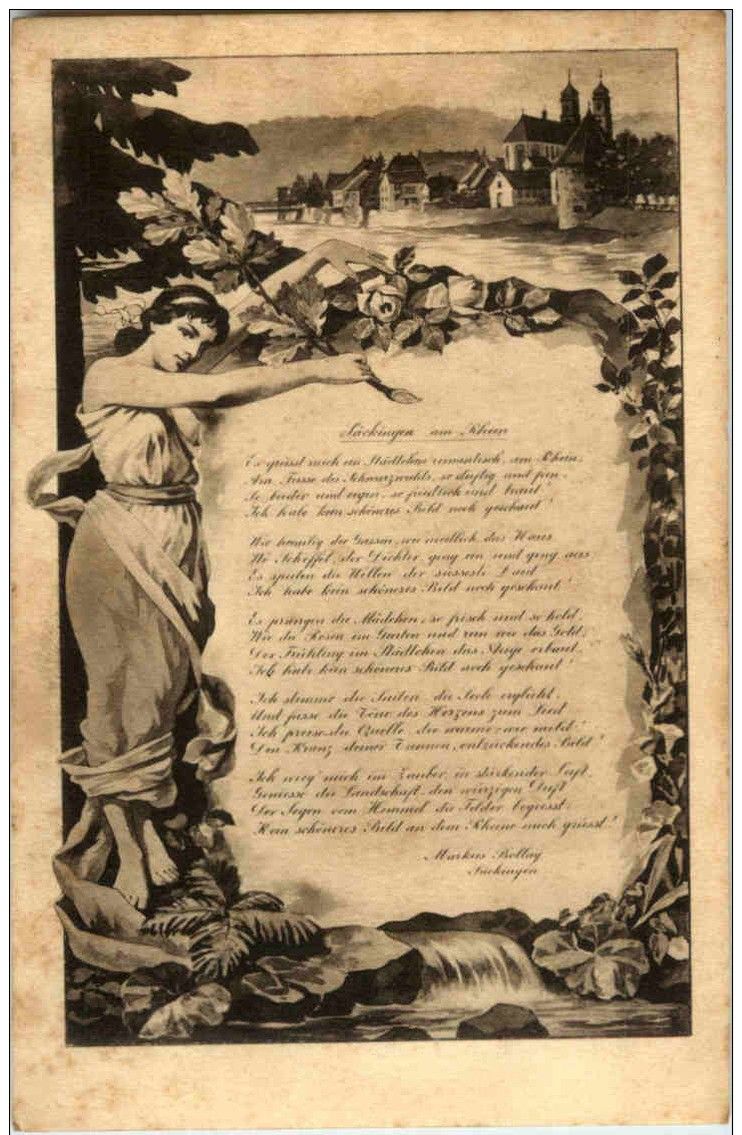 Säckingen am Rhein
Es grüsst mich ein Städtchen romantisch am Rhein,
Am Fusse des Schwarzwalds, so duftig und fein.
So bieder und eigen, so friedlich und traut!
Ich habe kein schöneres Bild noch geschaut!
Wie heimelig die Gassen, wie niedlich das Haus
Wo Scheffel, der Dichter, ging ein und ging aus
Es spielen die Wellen der süsseste Laut
Ich habe kein schöneres Bild noch geschaut!
Es prangen die Mädchen, so frisch und so hold,
Wie die Rosen im Garten und rein wie das Gold,
Der Frühling im Städtchen das Auge erbaut,
Ich habe kein schöneres Bild noch geschaut!
Ich stimme die Saiten, die Seele erglüht,
Und fasse die Töne des Herzens zum Lied
Ich preise die Quelle, die warme, wie mild!
Den Kranz deiner Tannen, entzückendes Bild!
Ich wieg' mich im Zauber, in stärkender Luft,
Geniesse die Landschaft, den würzigen Duft
Der Segen vom Himmel die Felder begiesst.
Kein schöneres Bild an dem Rheine mich grüsst!
Markus Bollag
Säckingen